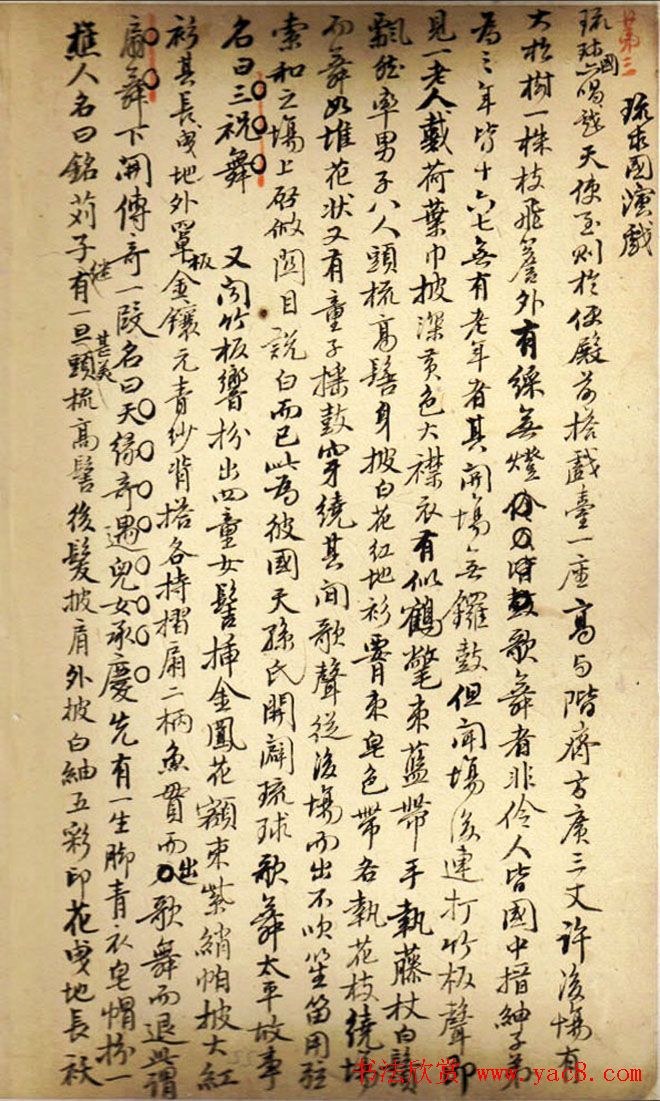 第三
琉球國演戲
琉球國亦唱戲天使至則於使殿前搭戲臺一座高与階齊方廣三丈許後場有
大松樹一株枝飛簷外有綵無燈歌舞者非伶人皆國中搢紳子弟
為之年皆十六七無有老年者其開場無鑼鼓但聞場後連打竹板聲即
見一老人戴荷葉巾披深黃色大襟衣有似鶴氅束藍帶手執藤杖白鬚
飄然率男子八人頭梳高髻身披白花紅地衫腰束皂色帶各執花枝繞場
而舞如堆花狀又有童子搖鼓穿繞其間歌聲從後場而出不吹笙笛用弦
索和之場上啟做関目說白而已此為彼國天孫氏開闢琉球歌舞太平故事
名曰三祝舞 又聞竹板響扮出四童女髻插金鳳花額束紫綃帕披大紅
衫其長曳地外罩金鑲元青紗背搭各持摺扇二柄魚貫而出歌舞而退此謂
板
扇舞下開傳奇一段名曰天緣奇遇兒女承慶先有一生脚青衣皂帽扮一
樵人名曰銘苅子有一旦頭梳高髻後髮披肩外披白紬五彩印花曳地長袄
繼
甚美
书法欣赏 www.yac8.com